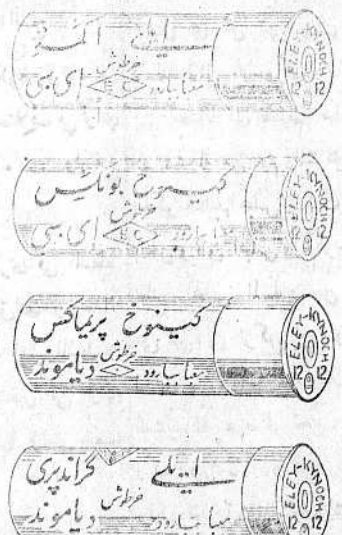 ایلی
خرطوش
معبا ببارود E.C ای سی
ELEY-KYNOCH
12 12
کینوخ بونکس
خرطوش
ای سی
ELEY-KYNOCH
12
کینوخ پریماکس
خرطوش
معبا ببارود دیاموند
ELEY-KYNOCH
12 12
ایلی گراندپری
خرطوش
معبا ببارود دیاموند
ELEY-KYNOCH
12 12